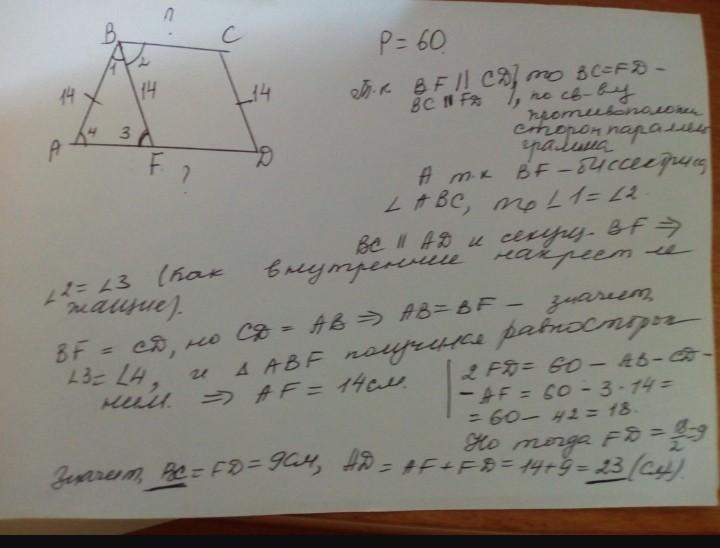 ?
B C
1 2
14 14 14
4 3
A F D
?
P = 60.
Т.к BF || CD, то BC = FD –
BC || FD, по св-ву
противополож
сторон паралле
грамма
А т.к BF – биссектриса
∠ ABC, то ∠1 = ∠2.
BC || AD и секущ. BF ⇒
∠2 = ∠3 (как внутренние накрест ле
жащие).
BF = CD, но CD = AB ⇒ AB = BF – значит,
∠3 = ∠4, и Δ ABF получился равносторон
ним. ⇒ AF = 14 см.
2 FD = 60 – AB – CD –
– AF = 60 – 3·14 =
= 60 – 42 = 18.
Но тогда FD = =9
2
Значит, BC = FD = 9 см, AD = AF + FD = 14 + 9 = 23 (см).